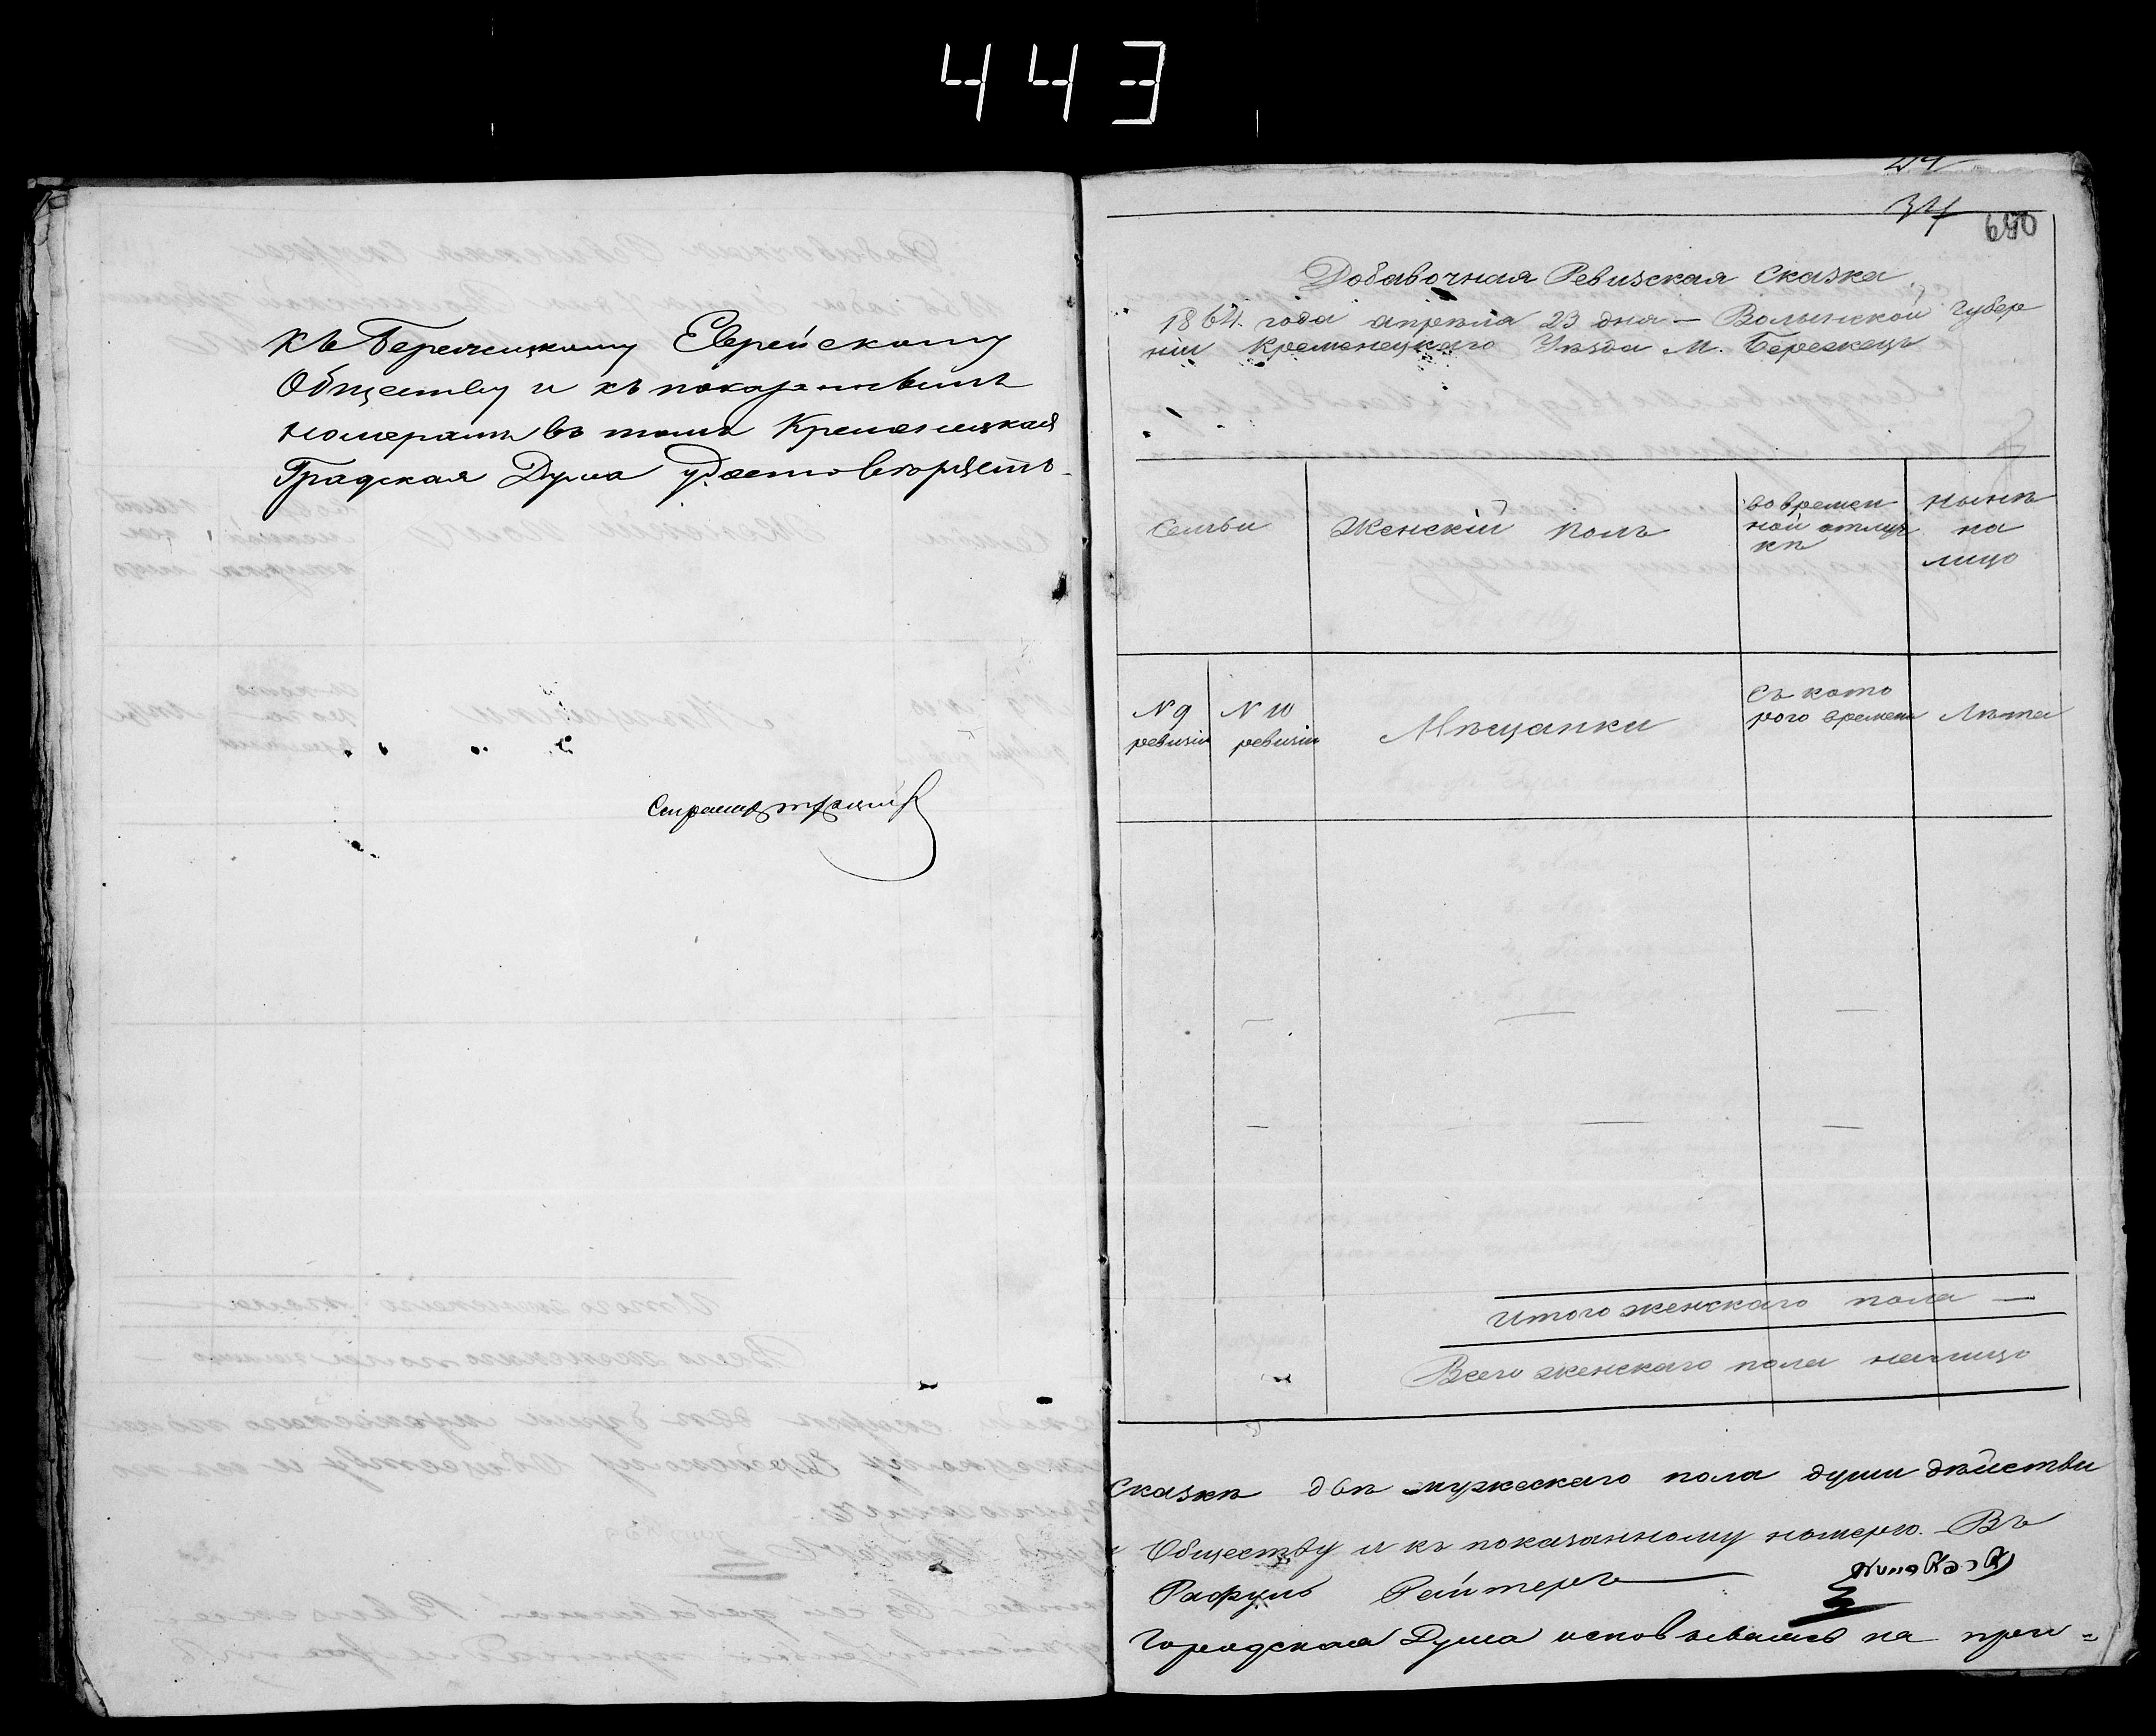 443
къ Бережецкому Еврейскому
Обществу и къ показаннымъ
номерамъ въ томъ Кременецкая
Градская Дума удостовѣряетъ
34
059
Добавочная Ревизская Сказка
1864 года апрѣля 23 дня — Волынской Губер
ніи Кременецкаго Уѣзда М. Бережецъ
Семьи
Женскій полъ
во времен
ной отлуч
кѣ
нынѣ
на
лицо
N 9
ревизіи
N 10
ревизіи
Мѣщанки
Съ кото
рого времени
Лѣта
Итого женскаго пола —
Всего женскаго пола налицо
Сказкѣ двѣ мужескаго пола души дѣйстви
Обществу и къ показанному номеру. Въ
Рафулъ Рейтеръ
Городская Дума основываясь на при=